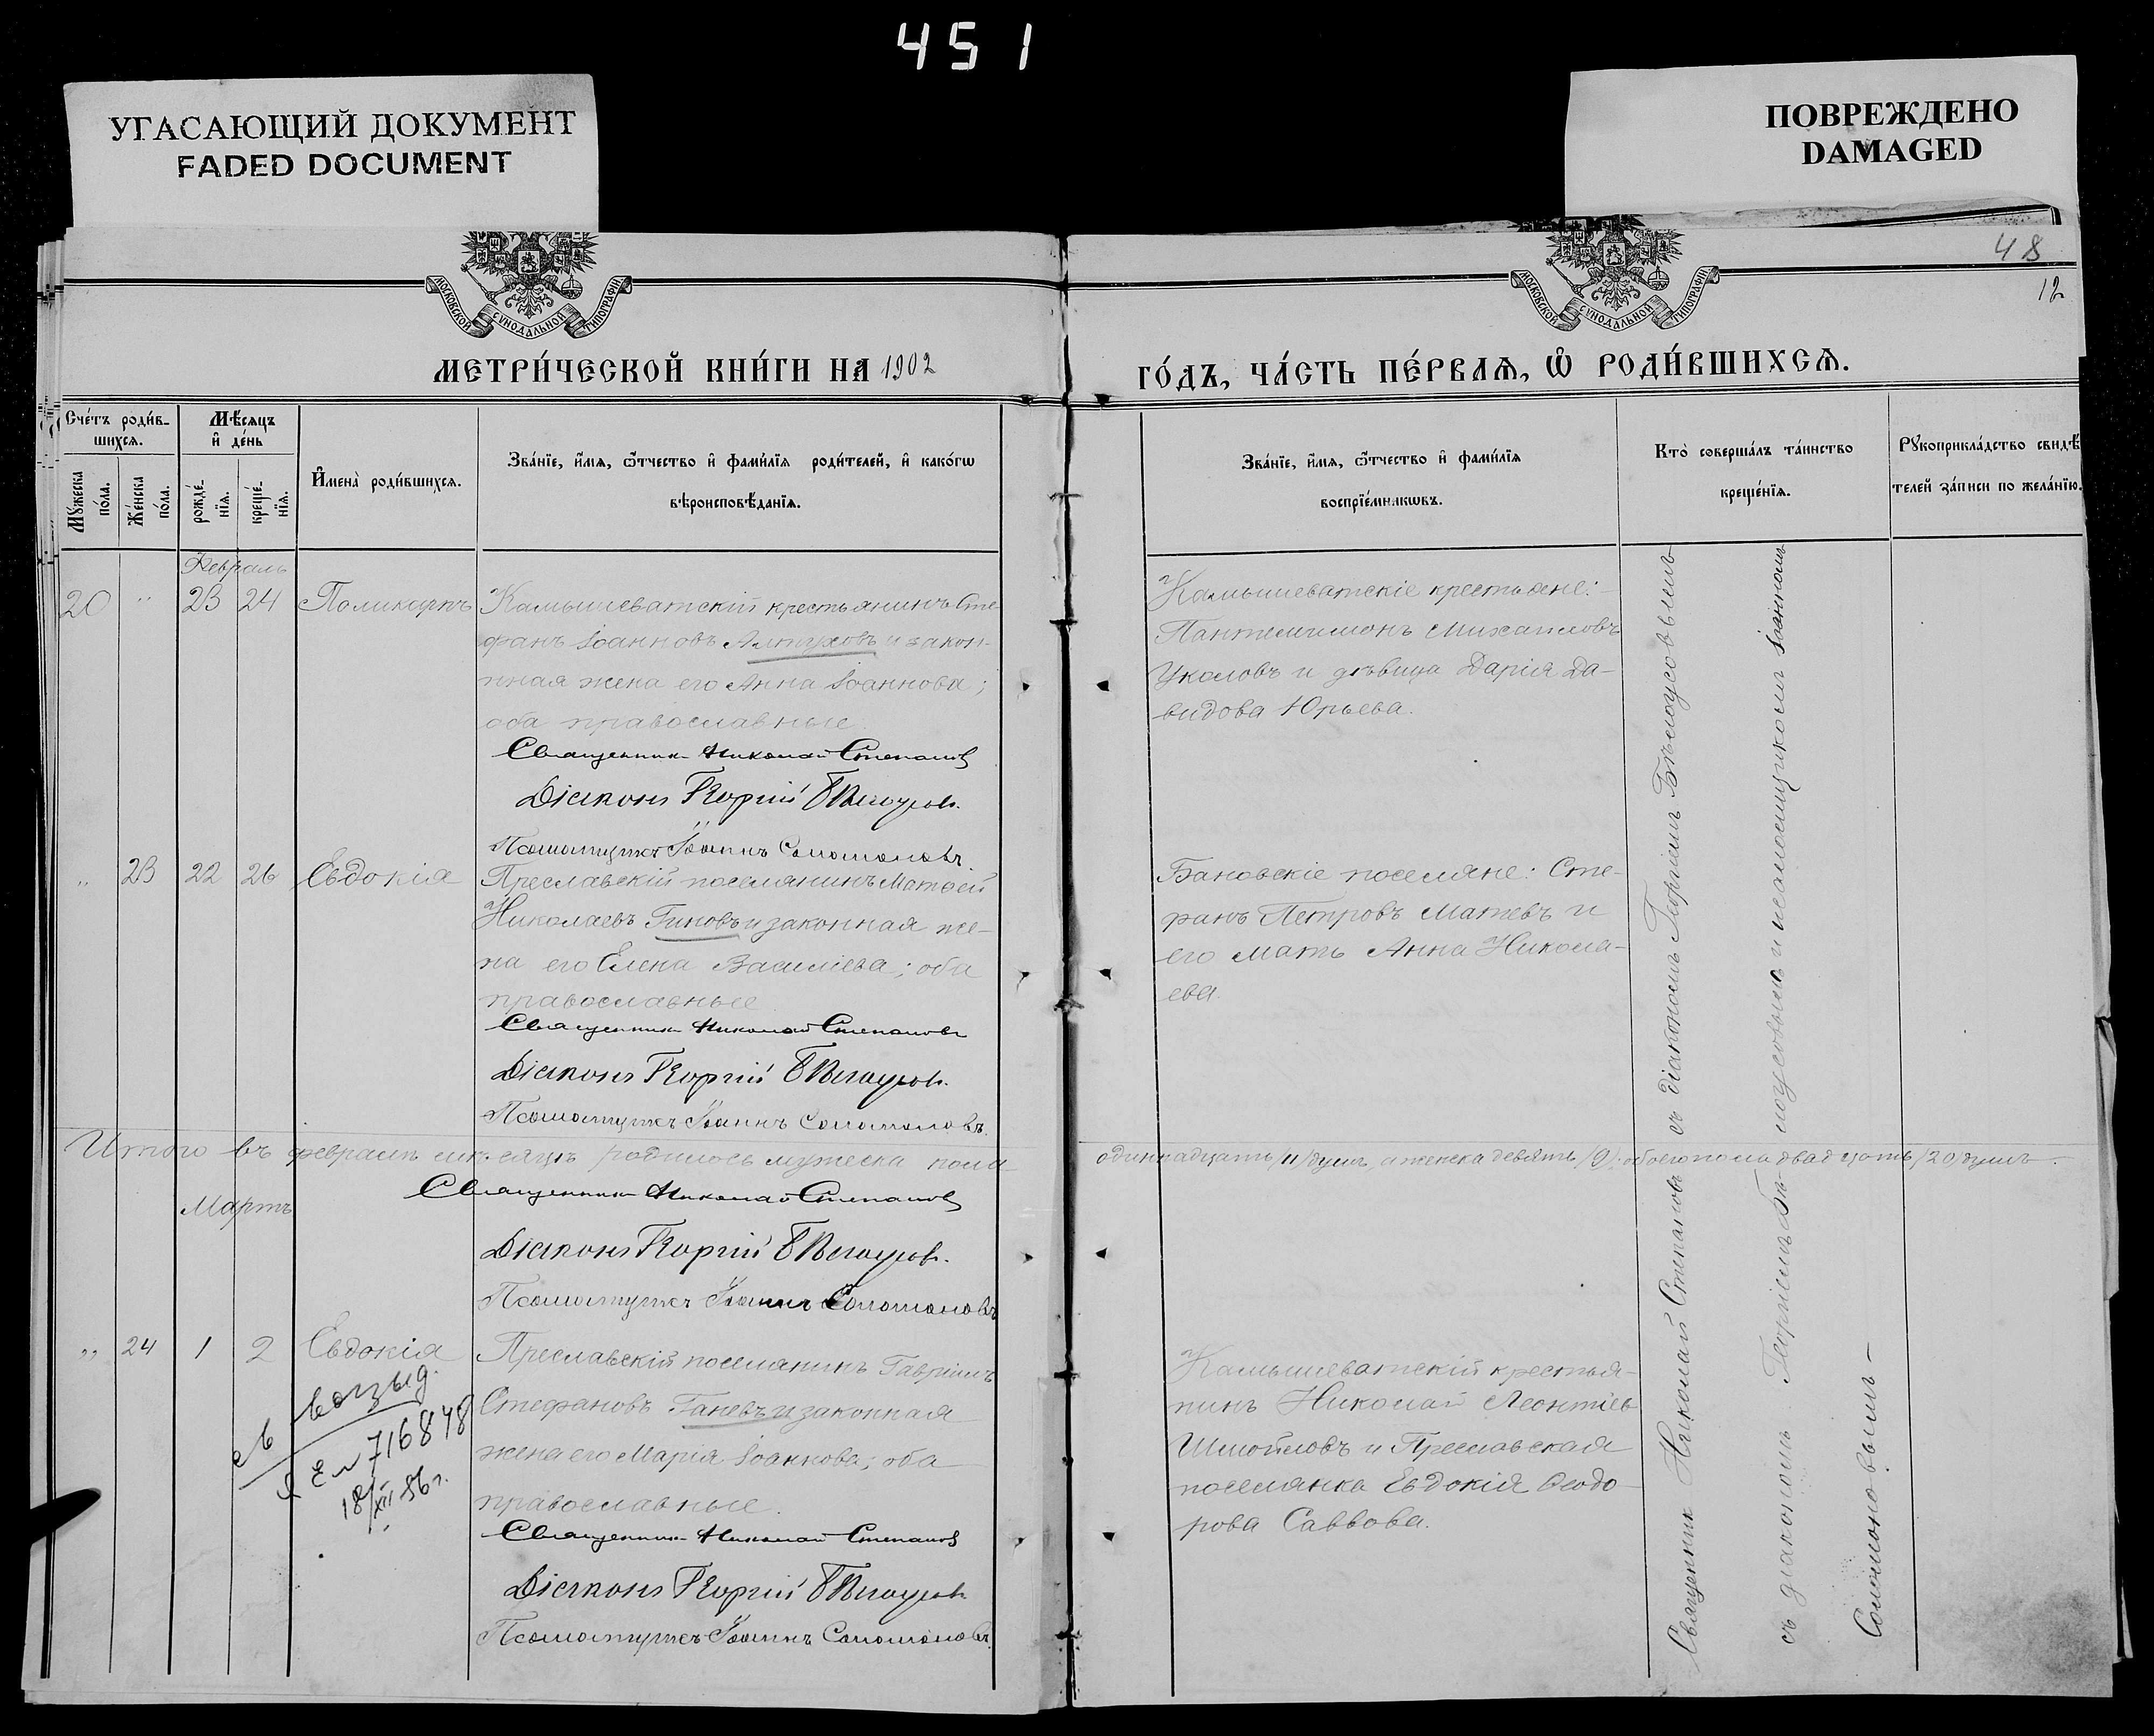 451
УГАСАЮЩИЙ ДОКУМЕНТ
FADED DOCUMENT
ПОВРЕЖДЕНО
DAMAGED
МОСКОВСКОЙ СѴНОДАЛЬНОЙ ТИПОГРАФІИ
МОСКОВСКОЙ СѴНОДАЛЬНОЙ ТИПОГРАФІИ
48
12
МЕТРИ́ЧЕСКОЙ КНИ́ГИ НА 1902
ГО́ДЪ, ЧА́СТЬ ПЕ́РВАѦ, Ѡ҆ РОДИ́ВШИХСѦ.
Сче́тъ роди́в-
шихсѧ.
Мꙋ́жеска по́ла.
Же́нска по́ла.
Мѣ́сѧцъ
и҆ де́нь
рожде́-нїѧ.
креще́-нїѧ.
И҆мена̀ роди́вшихсѧ.
Зва́нїе, и҆́мѧ, ѻ҆́тчество и҆ фами́лїѧ роди́телей, и҆ како́гѡ
вѣроисповѣ́данїѧ.
Зва́нїе, и҆́мѧ, ѻ҆́тчество и҆ фами́лїѧ
воспрїе́мникѡвъ.
Кто̀ соверша́лъ та́инство
креще́нїѧ.
Рꙋкоприкла́дство свидѣ́-
телей за́писи по жела́нїю.
Февраль
20 " 23 24 Поликарпъ
Камышеватскій крестьянинъ Сте-
фанъ Іоанновъ Алтуховъ и закон-
нная жена его Анна Іоаннова;
оба православные.
Священникъ Николай Степановъ
Діаконъ Георгій Бѣлоусовъ.
Псаломщикъ Іоаннъ Соломоновъ.
Камышеватскіе крестьяне:
Пантелеимонъ Михаиловъ
Уколовъ и дѣвица Дарія Да-
видова Юрьева.
" 23 22 26 Евдокія
Преславскій поселянинъ Матѳей
Николаевъ Гиновъ и законная же-
на его Елена Василіева; оба
православные
Священникъ Николай Степановъ
Діаконъ Георгій Бѣлоусовъ.
Псаломщикъ Іоаннъ Соломоновъ.
Бановскіе поселяне: Сте-
фанъ Петровъ Матевъ и
его мать Анна Никола-
ева.
Итого въ февралѣ мѣсяцѣ родилось мужеска пола
одиннадцать /11/ душъ, а женска девять /9/; обоего пола двадцать /20/ душъ.
Священникъ Николай Степановъ
Март
Діаконъ Георгій Бѣлоусовъ.
Псаломщикъ Іоаннъ Соломоновъ
" 24 1 2 Евдокія
Преславскій поселянинъ Гавріилъ
Стефановъ Ганевъ и законная
жена его Марія Іоаннова; оба
православные.
Священникъ Николай Степановъ
Діаконъ Георгій Бѣлоусовъ
Псаломщикъ Іоаннъ Соломоновъ.
716848
18/XII-56 г.
Камышеватскій крестья-
нинъ Николай Леонтіев
Шмойловъ и Преславская
поселянка Евдокія Ѳеодо-
рова Саввова.
Священник Николай Степановъ съ діакономъ Георгіемъ Бѣлоусовымъ
съ діакономъ Георгіемъ Бѣ-лоусовымъ и псаломщикомъ Іоанномъ
Соломоновымъ -